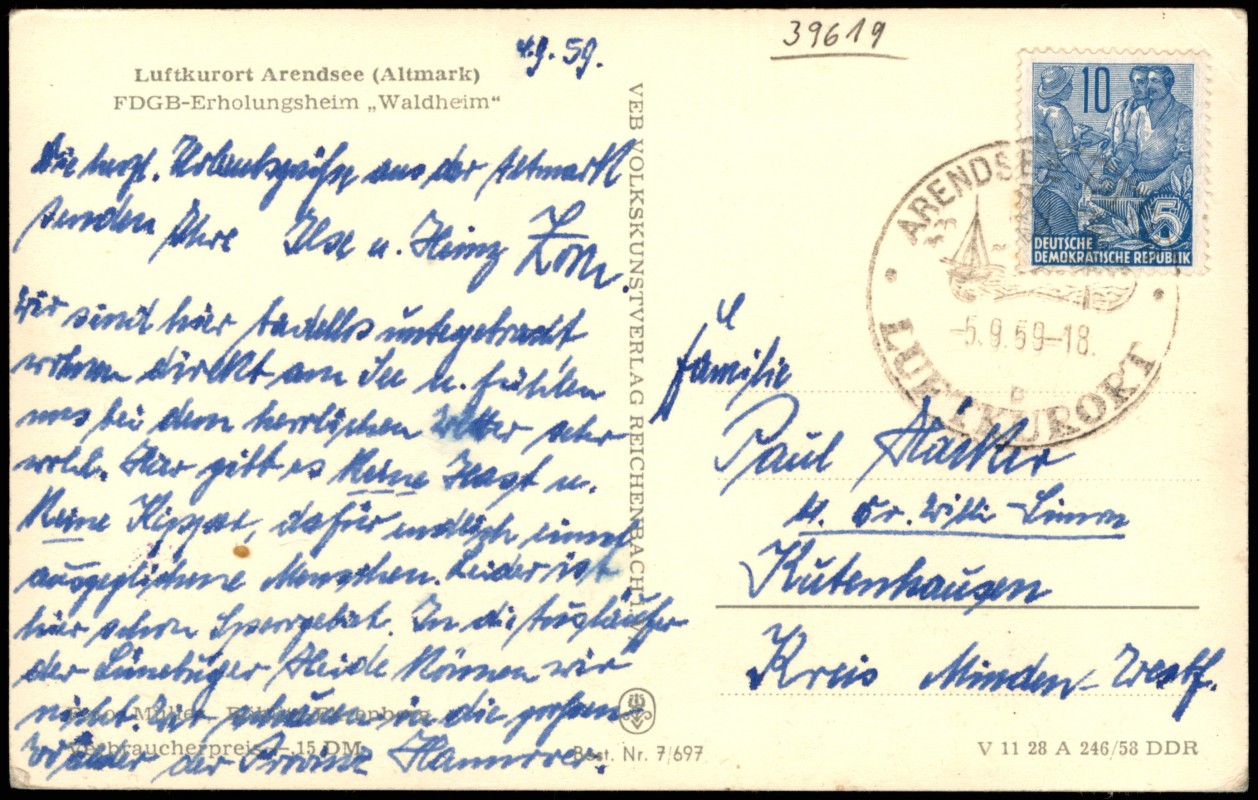 4.9.59.
39619
Luftkurort Arendsee (Altmark)
FDGB-Erholungsheim „Waldheim“
Die herzl. Urlaubsgrüße aus der Altmark
senden Ihre Ilse u. Heinz
Wir sind hier tadellos untergebracht
wohnen direkt am See u. fühlen
uns bei dem herrlichen Wetter sehr
wohl. Hier gibt es keine Hast u.
Keine, dafür endlich einmal
ausgeglichene Menschen. Leider ist
hier schon Sperrgebiet. In die Ausläufer
der Lüneburger Heide können wir
nicht. Wir schauen in die großen
Wälder der Provinz Hannover.
Verbraucherpreis -.15 DM
Best. Nr. 7/697
VEB VOLKSKUNSTVERLAG REICHENBACH i. V.
10
5
DEUTSCHE
DEMOKRATISCHE REPUBLIK
ARENDSEE
-5.9.59-18.
LUFTKURORT
Familie
Paul
Willi
Kutenhausen
Kreis Minden-Westf.
V 11 28 A 246/58 DDR